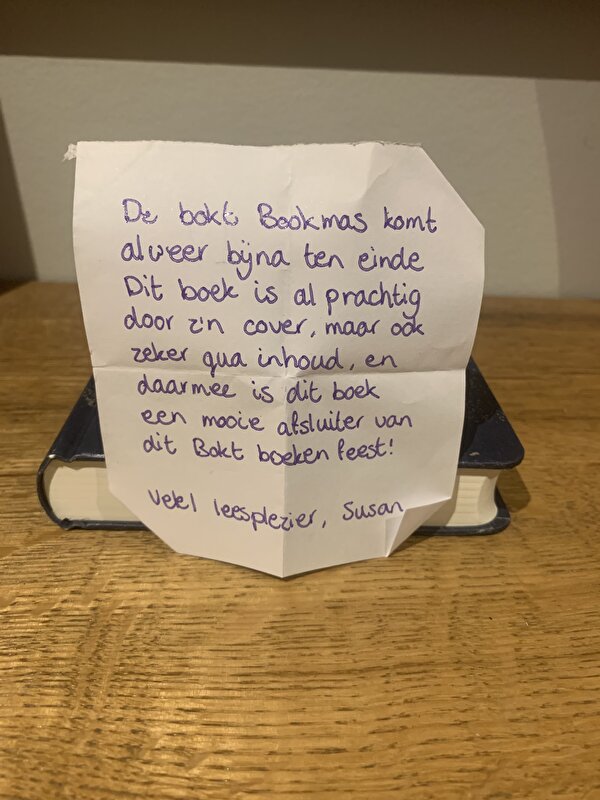 De bokt Bookmas komt
alweer bijna ten einde
Dit boek is al prachtig
door z'n cover, maar ook
zeker qua inhoud, en
daarmee is dit boek
een mooie afsluiter van
dit Bokt boeken feest!
Veel leesplezier, Susan